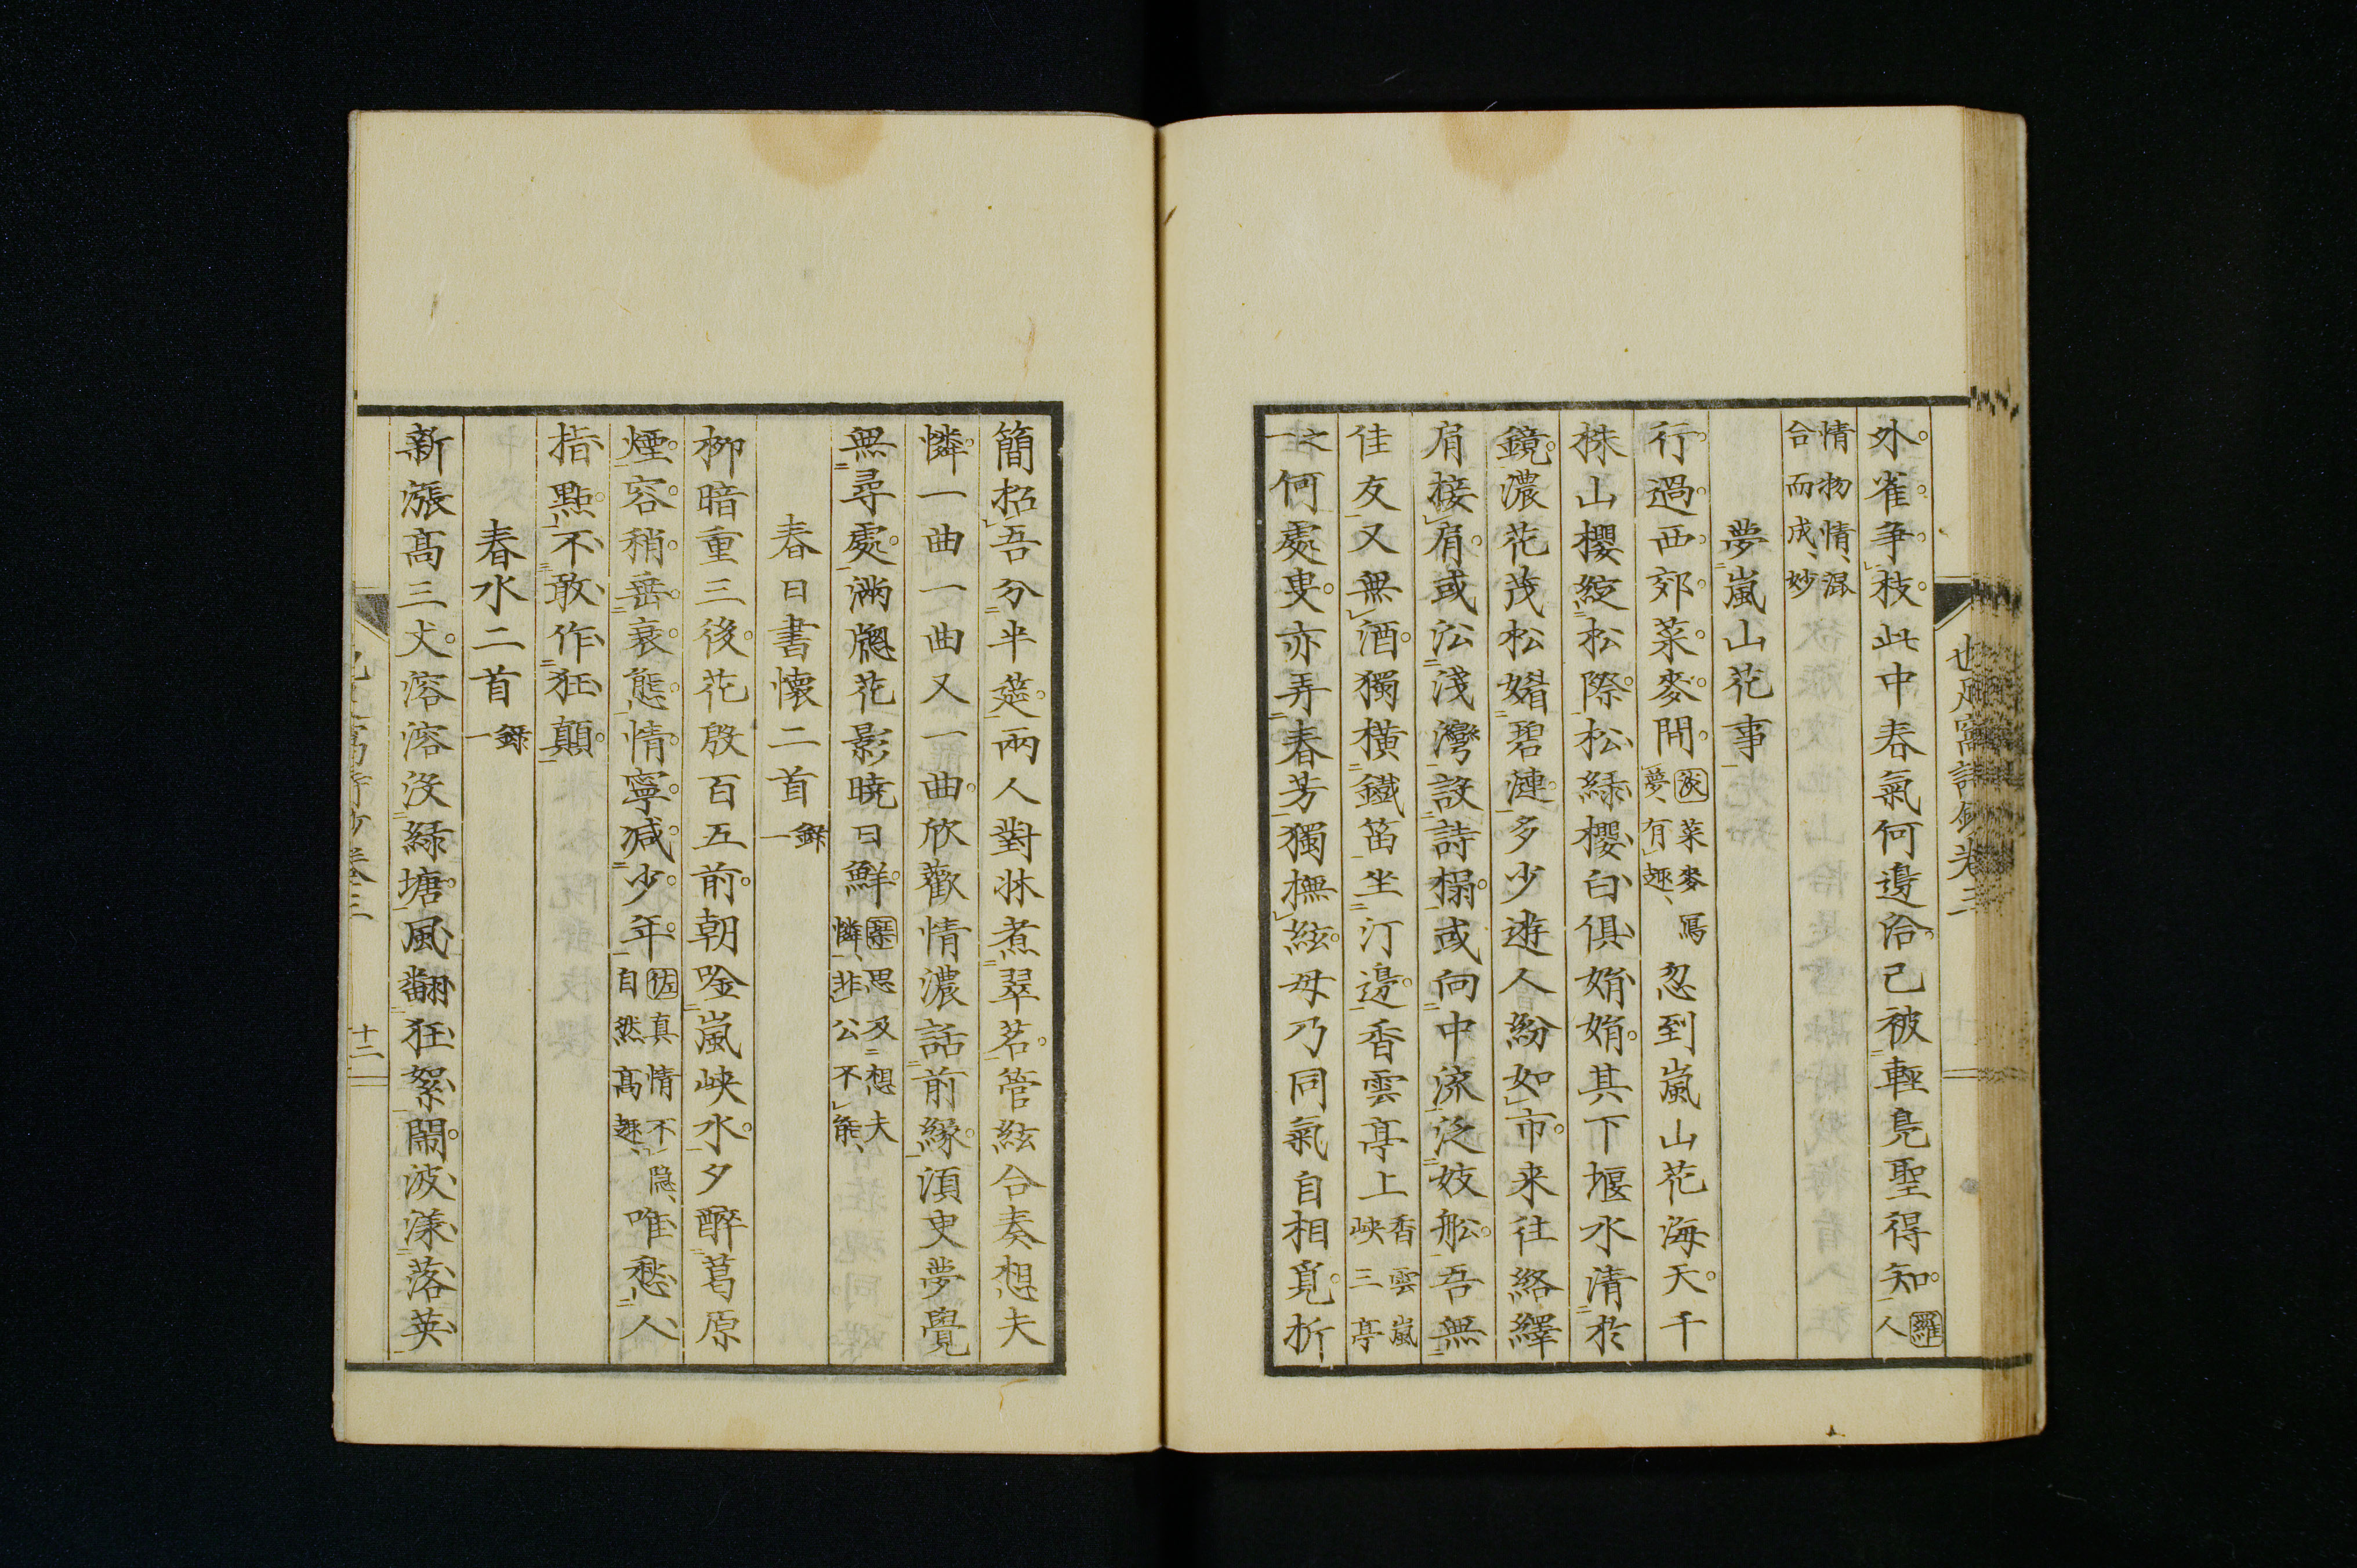 外雀争枝此中春氣何邊洽已被輕鳧聖得知羅人
情物情混
合而成妙
夢嵐山花事
行過西郊菜麥開淡菜麥寫夢有趣忽到嵐山花海天千
株山櫻綻松際松綠櫻白俱娟娟其下堰水清於
鏡濃花茂松媚碧漣多少遊人紛如市来往絡繹
肩接肩或㳂淺灣設詩榻或向中流泛妓舩吾無
佳友又無酒獨橫鐵笛坐汀邊香雲亭上香雲嵐峡三亭
之一何處叟亦弄春芳獨撫絃毋乃同氣自相覓折
也足窩詩鈔卷三
簡招吾分半筵兩人對牀煮翠茗管絃合奏想夫
憐一曲一曲又一曲欣歡情濃話前緣湏臾夢覺
無尋處滿牕花影曉日鮮思及想夫憐非公不能
春日書懷二首錄一
柳暗重三後花殷百五前朝唫嵐峽水夕醉葛原
煙容稍岳衰態情寧減少年佐真情不隠自然高趣唯愁人
指點不敢作狂顛
春水二首錄一
新漲高三丈溶溶没綠塘風翻狂絮鬧波漾落英
卷三
十二